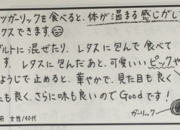 ッガーリックを食べると、体が温まる感じがし
クスできます。
ダルトに混ぜたり、レタスに包んで食べて
す。レタスに包んだあと、可愛いピックや
ようじで止めると、華やかで、見た目も良く
も良く、さらに味も良いのでGoodです!
ガーリック
用 女性/40代